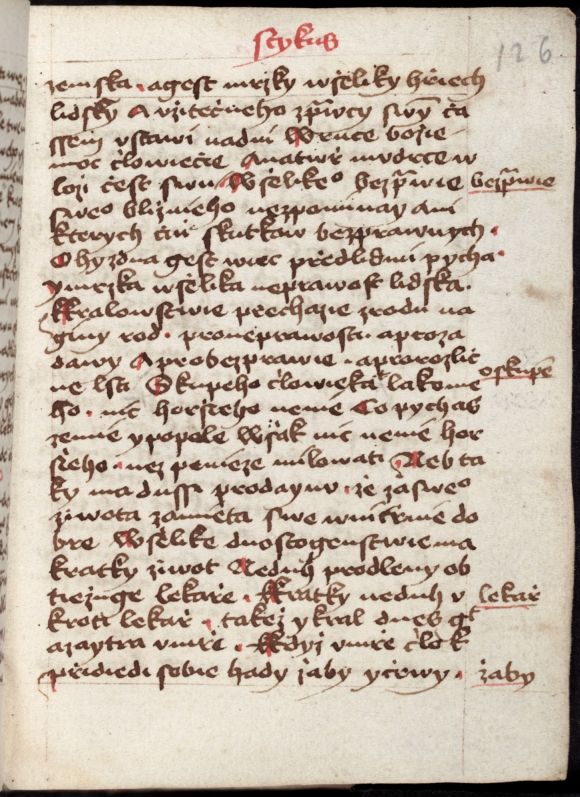 scykus
126
zemska · agest mrzky wsseliky hřiech
lidsky A vžitečneho zprawcy swy ča
ssem vstawi nadni W ruce bozie
moc človieče Anatwř mudrce w
loži čest swu Wšelike⁰ bezprawie bezprawie
swe⁰ bližnieho nezpominay Ani
kterych čiň skutkuow bezprawnych ·
Ohyzdna gest wiec předlidmi pycha ·
ymrzka wšelika neprawost lidska ·
Kralowstwie přechazie zrodu na
giny rod · proneprawostu aproza
dawy A probezprawie · aprorozlič
ne lsti Skupeho človieka lakome oskupě
ho · nic horšieho nenie Co pychaš
zemie ypopele Wšak nic nenie hor
šieho · nez penieze milowati Neb ta
ky ma dussi prodaynu · že zaswe⁰
ziwota zamieta swe wnitřnie do
bre Wšelike duostogenstwie ma
kratky ziwot Neduh prodleny ob
tiezuge lekaře · Kratky neduh v lekař
kroti lekař · takež ykral dnes gt
azaytra vmře · Kdyz vmře člok
přidiedi sobie hady žaby yčrwy · žaby